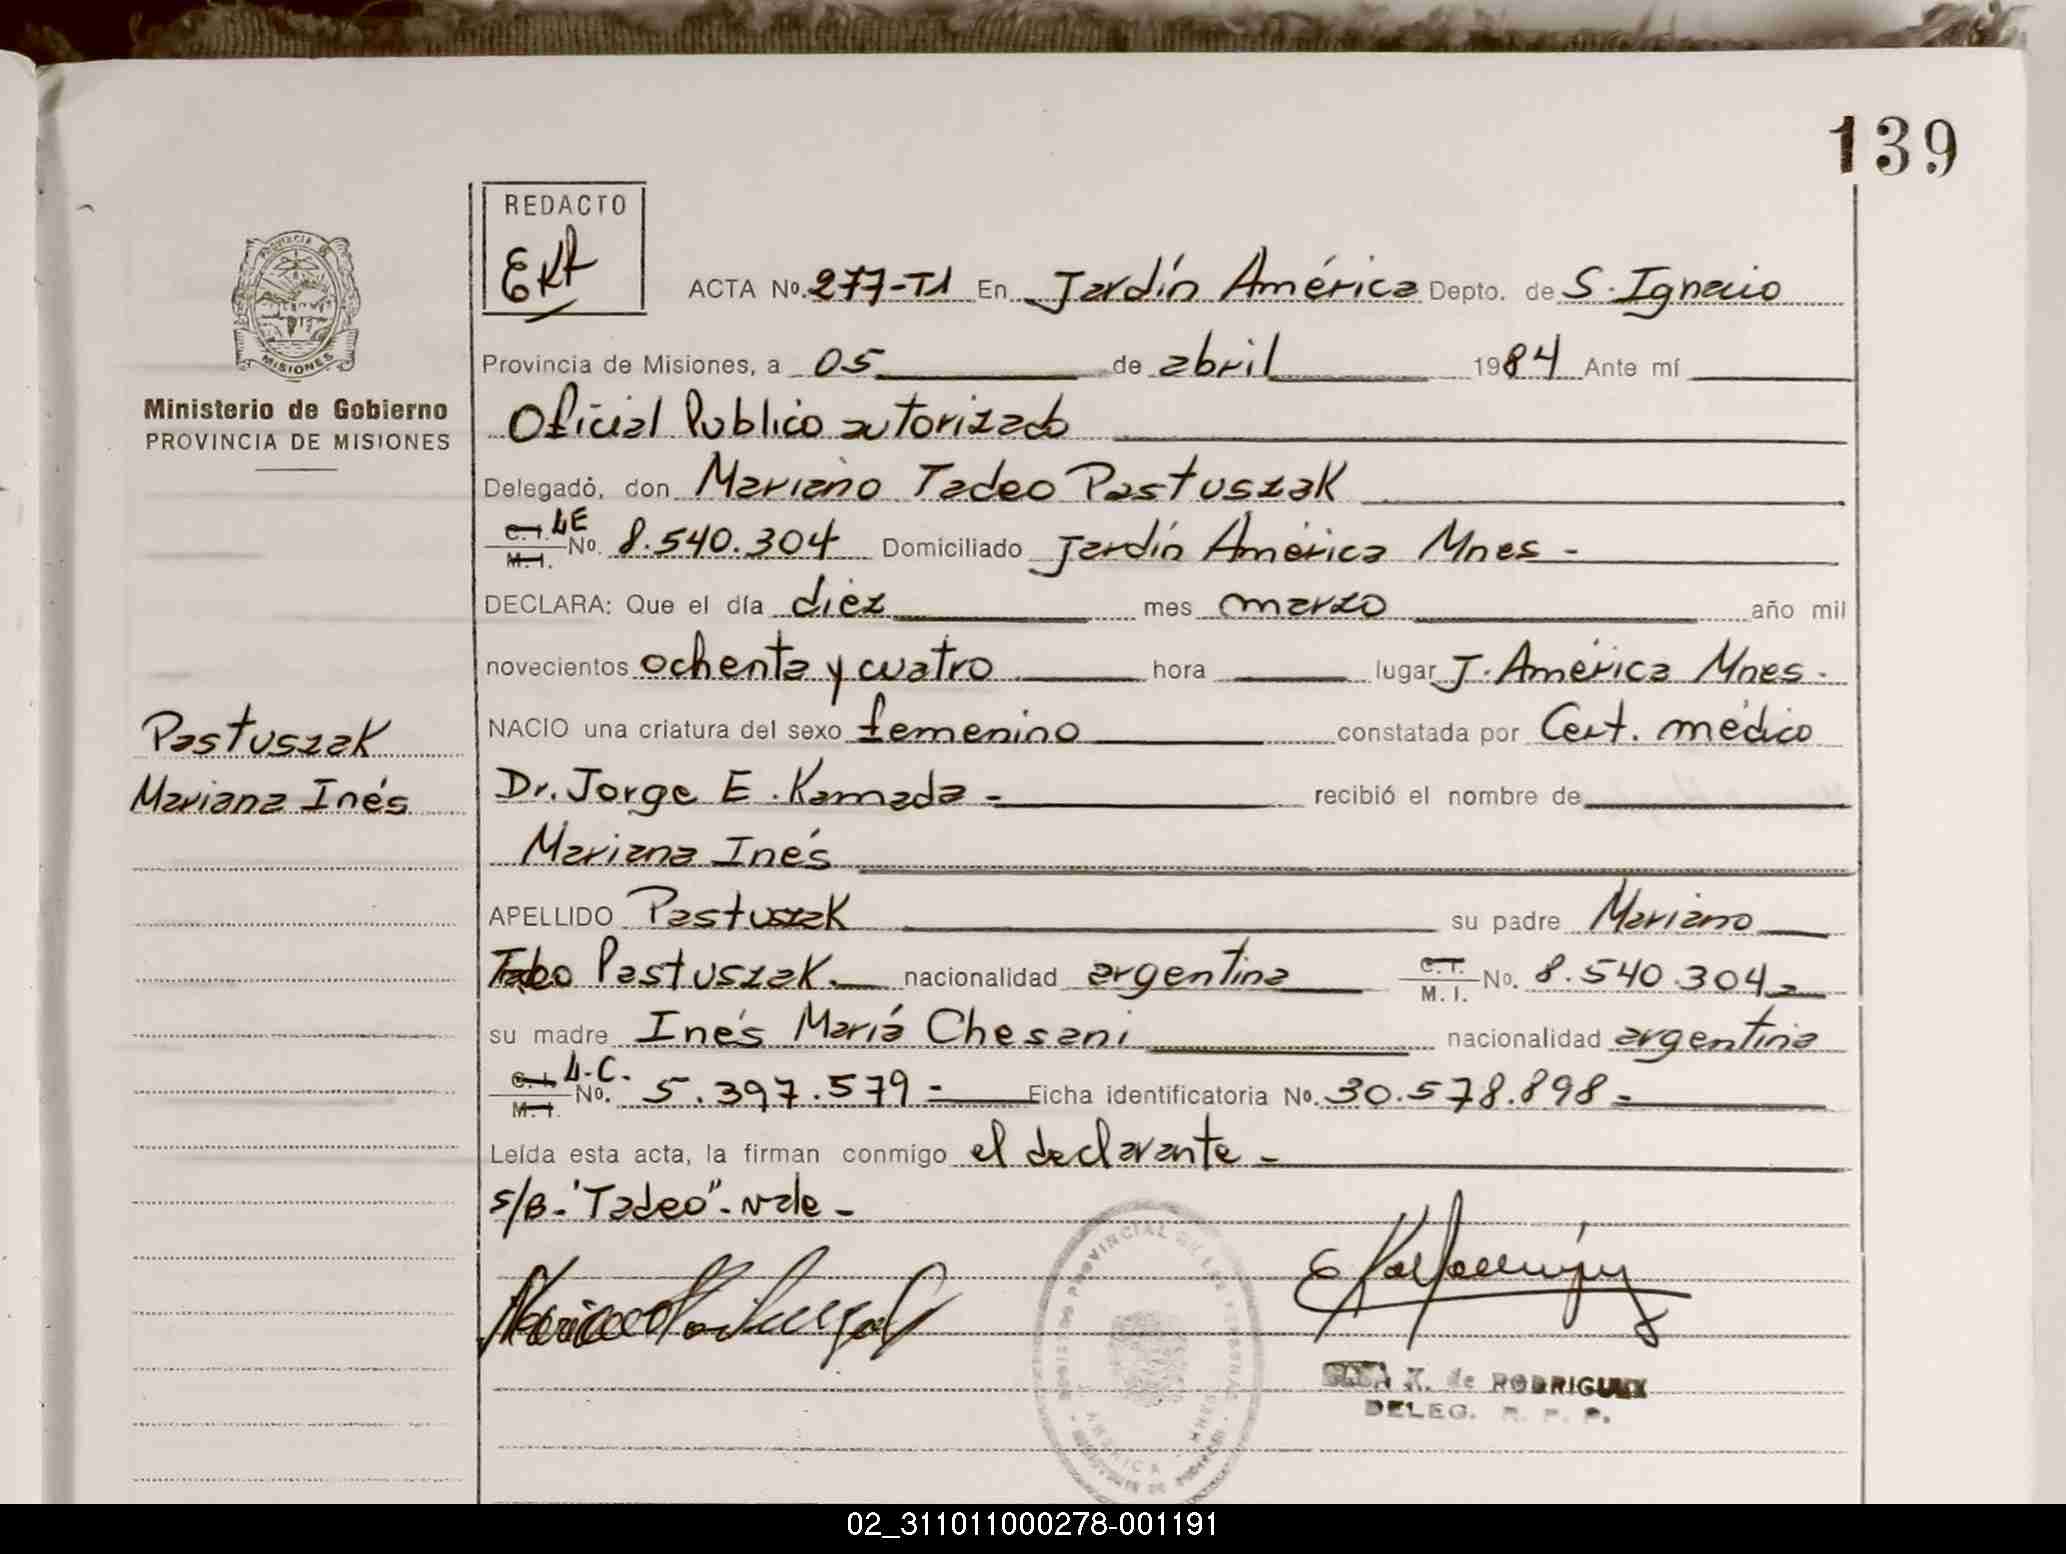 139
REDACTO
EKR
ACTA Nº. 277-T1 En Jardín América Depto. de S. Ignacio
Provincia de Misiones, a 05 de abril 1984 Ante mí
Oficial Público autorizado
Delegado, don Mariano Tadeo Pastuszak
C.I. LE
M.I. Nº. 8.540.304 Domiciliado Jardín América Mnes -
DECLARA: Que el día diez mes marzo año mil
novecientos ochenta y cuatro hora lugar J. América Mnes.
NACIO una criatura del sexo femenino constatada por Cert. médico
Dr. Jorge E. Kamada - recibió el nombre de
Mariana Inés
APELLIDO Pastuszak su padre Mariano
Tadeo Pastuszak. nacionalidad argentina C.I.
M.I. Nº. 8.540.304 -
su madre Inés María Chesani nacionalidad argentina
C.I. L.C.
M.I. Nº. 5.397.579 - Ficha identificatoria Nº. 30.578.898 -
Leída esta acta, la firman conmigo el declarante -
s/B - "Tadeo" - vale -
K. de RODRIGUEZ
DELEG. R. P. P.
MISIONES
Ministerio de Gobierno
PROVINCIA DE MISIONES
Pastuszak
Mariana Inés
02_311011000278-001191